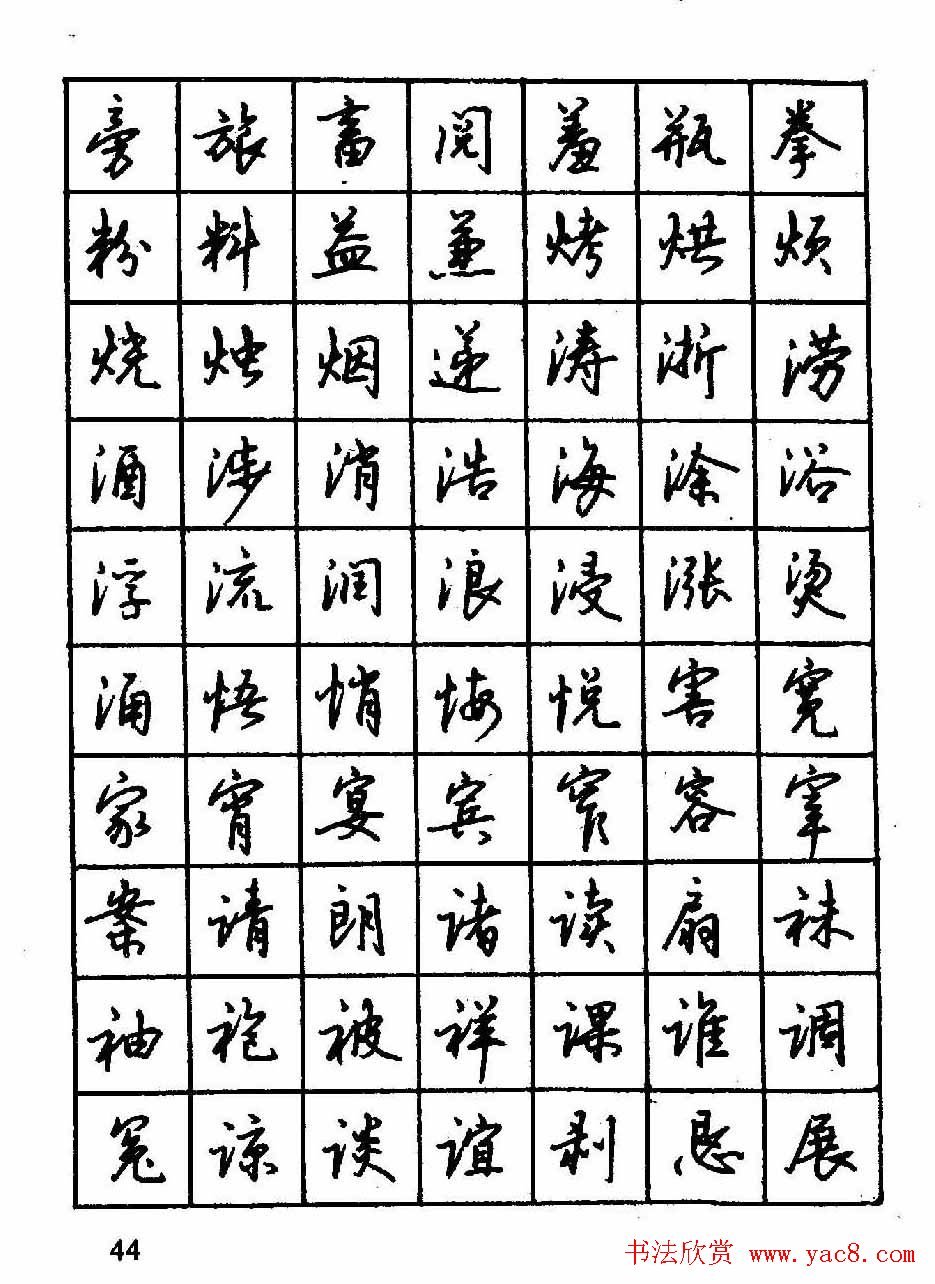 旁旅畜阅羞瓶拳
粉料益兼烤烘烦
烧烛烟递涛浙涝
酒涉消浩海涂浴
浮流润浪浸涨烫
涌悟悄悔悦害宽
家宵宴宾窄容宰
案请朗诸读扇袜
袖袍被祥课谁调
冤谅谈谊剥恳展
44
书法欣赏 www.yac8.com